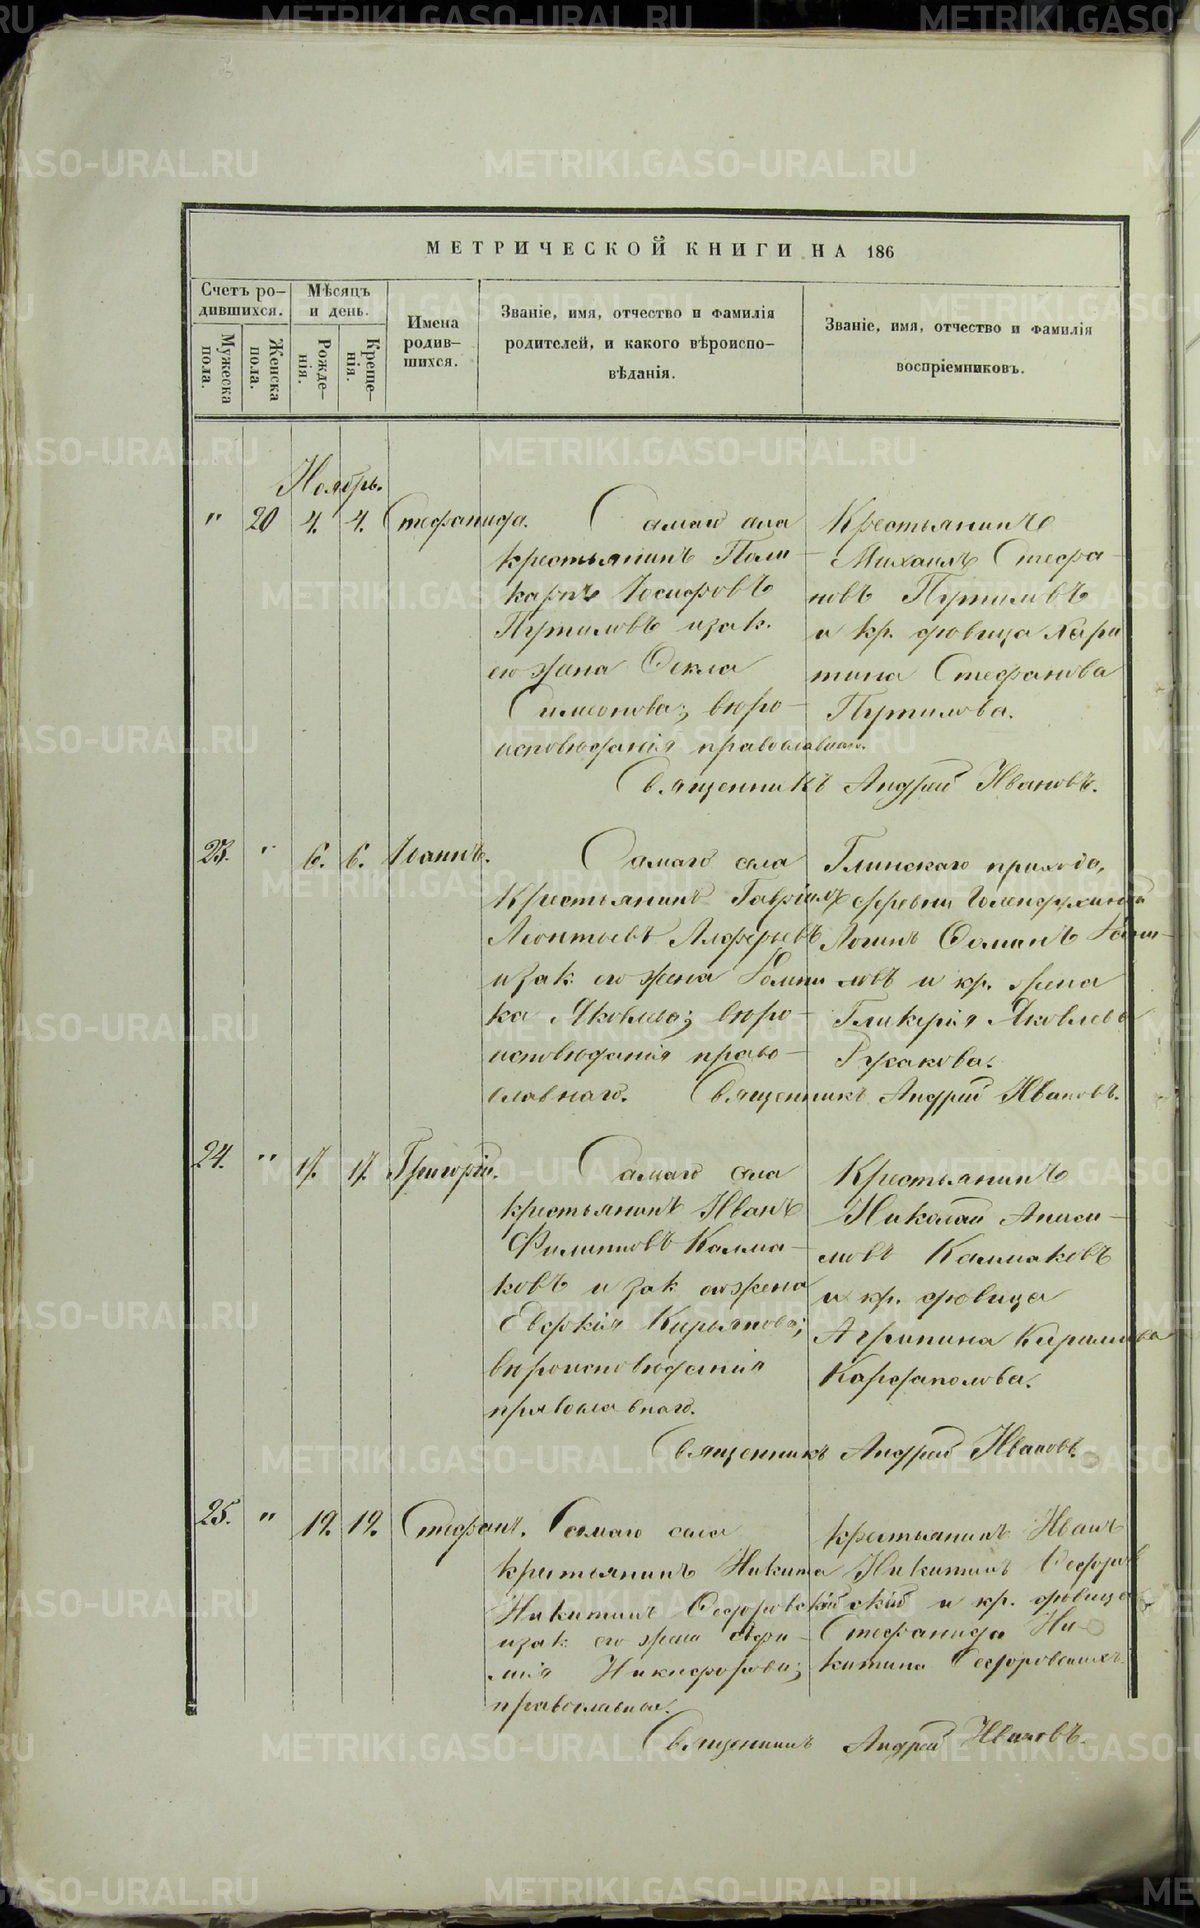 МЕТРИЧЕСКОЙ КНИГИ НА 186
Счетъ ро-
дившихся.
Мужеска
пола.
Женска
пола.
Мѣсяцъ
и день.
Рожде-
нія.
Креще-
нія.
Имена
родив-
шихся.
Званіе, имя, отчество и фамилія
родителей, и какого вѣроиспо-
вѣданія.
Званіе, имя, отчество и фамилія
воспріемниковъ.
Ноябрь.
" 20 4. 4. Стефанида.
Самаго села
крестьянинъ Поли-
карпъ Іосифовъ
Путиловъ и зак.
его жена Ѳекла
Симеонова; вѣро-
исповѣданія православнаго.
Крестьянинъ
Михаилъ Стефа-
новъ Путиловъ
и кр. дѣвица Хари
тина Стефанова
Путилова.
Священникъ Андрей Ивановъ.
23. " 6. 6. Іоаннъ.
Самаго села
Крестьянинъ Гавріилъ
Леонтьевъ Алферьевъ
и зак. его жена Домни
ка Яковлева; вѣро-
исповѣданія право-
славнаго.
Глинскаго прихода,
деревни
Логинъ
ловъ и кр. жена
Гликерія Яковлева
Русакова.
Священникъ Андрей Ивановъ.
24. " 17. 17. Григорій.
Самаго села
крестьянинъ Иванъ
Филиповъ Калма-
ковъ и зак его жена
Евдокія Кирьянова;
вѣроисповѣданія
православнаго.
Крестьянинъ
Николай Аниси-
мовъ Калмаковъ
и кр. дѣвица
Агрипина Кирилова
Карфаполова.
Священникъ Андрей Ивановъ.
25. " 19. 19. Стефанъ.
Самаго села
крестьянинъ Никита
Никитинъ Ѳедоровскій
и зак его жена
Никифорова;
православныя.
крестьянинъ Иванъ
Никитинъ Ѳедоров
скій и кр. дѣвица
Стефанида Ни-
китина Ѳедоровскихъ.
Священникъ Андрей Ивановъ.
METRIKI.GASO-URAL.RU